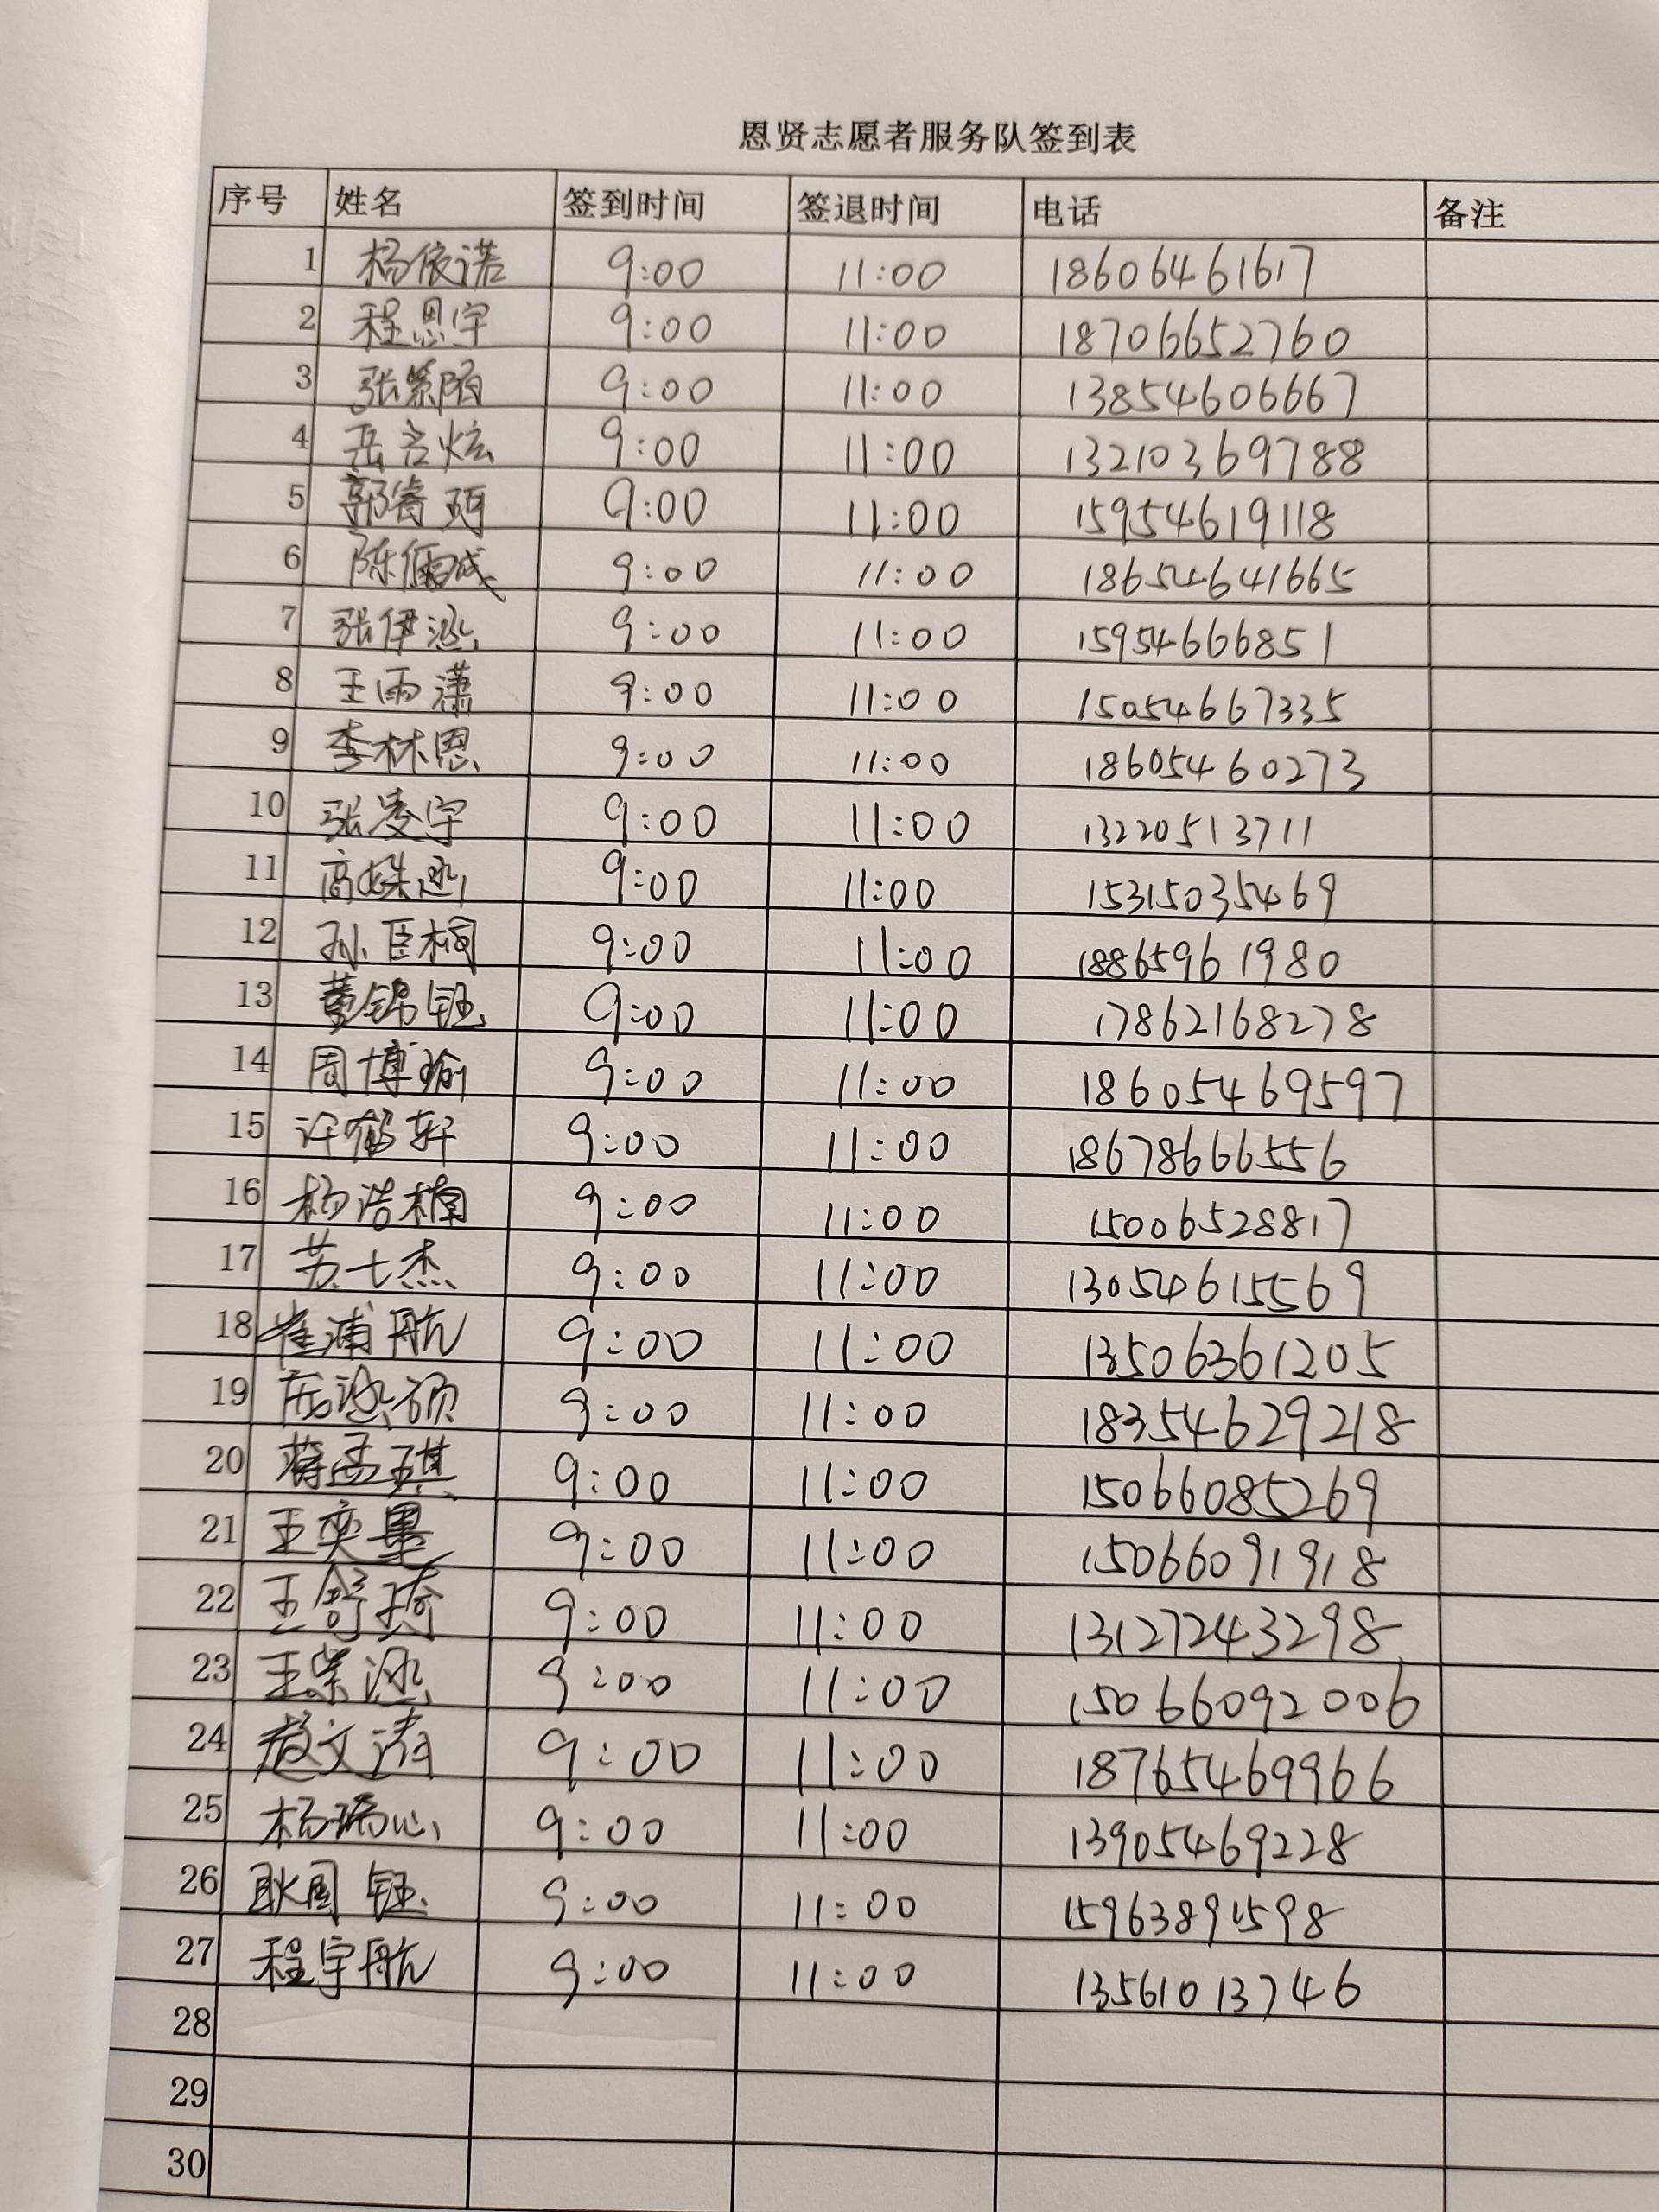 恩贤志愿者服务队签到表
序号 姓名 签到时间 签退时间 电话 备注
1 杨依诺 9:00 11:00 18606461617
2 程恩宇 9:00 11:00 18706652760
3 张紫陌 9:00 11:00 13854606667
4 岳言炫 9:00 11:00 13210369788
5 郭睿珂 9:00 11:00 15954619118
6 陈儒成 9:00 11:00 18654641665
7 张伊涵 9:00 11:00 15954666851
8 王雨潇 9:00 11:00 15054667335
9 李林恩 9:00 11:00 18605460273
10 张凌宇 9:00 11:00 13220513711
11 高姝涵 9:00 11:00 15315035469
12 孙臣桐 9:00 11:00 18865961980
13 董锦钰 9:00 11:00 17862168278
14 周博瑜 9:00 11:00 18605469597
15 许鹤轩 9:00 11:00 18678666556
16 杨浩楠 9:00 11:00 15006528817
17 苏士杰 9:00 11:00 13054615569
18 崔浦航 9:00 11:00 13506361205
19 硕 9:00 11:00 18354629218
20 蒋孟琪 9:00 11:00 15066085269
21 王奕墨 9:00 11:00 15066091918
22 王舒琦 9:00 11:00 13127243298
23 王紫涵 9:00 11:00 15066092006
24 赵文清 9:00 11:00 18765469966
25 杨瑞心 9:00 11:00 13905469228
26 耿周钰 9:00 11:00 15963891598
27 程宇航 9:00 11:00 13561013746
28
29
30